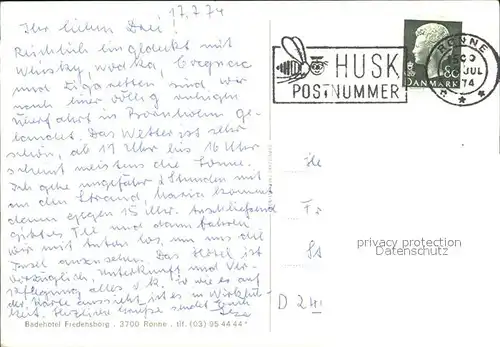 17.7.74
Ihr lieben Drei!
Reichlich eingedeckt mit
Whisky, Wodka, Cognac
und Zigaretten sind wir
nach einer völlig ruhigen
Überfahrt in Bornholm ge-
landet. Das Wetter ist sehr
schön, ab 11 Uhr bis 16 Uhr
scheint meistens die Sonne.
Ich gehe ungefähr 2 Stunden mit
an den Strand, Maria kommt
dann gegen 15 Uhr. Anschließend
gibt es Tee und dann fahren
wir mit Auto los, um uns die
Insel anzusehen. Das Hotel ist
vorzüglich, Unterkunft und Ver-
pflegung alles o.k. So wie es auf
der Karte aussieht ist es in Wirklich-
keit. Herzliche Grüße sendet Euch
Badehotel Fredensborg . 3700 Rønne . tlf. (03) 95 44 44
HUSK
POSTNUMMER
RØNNE
JUL
74
80
DANMARK
D 24
privacy protection
Datenschutz